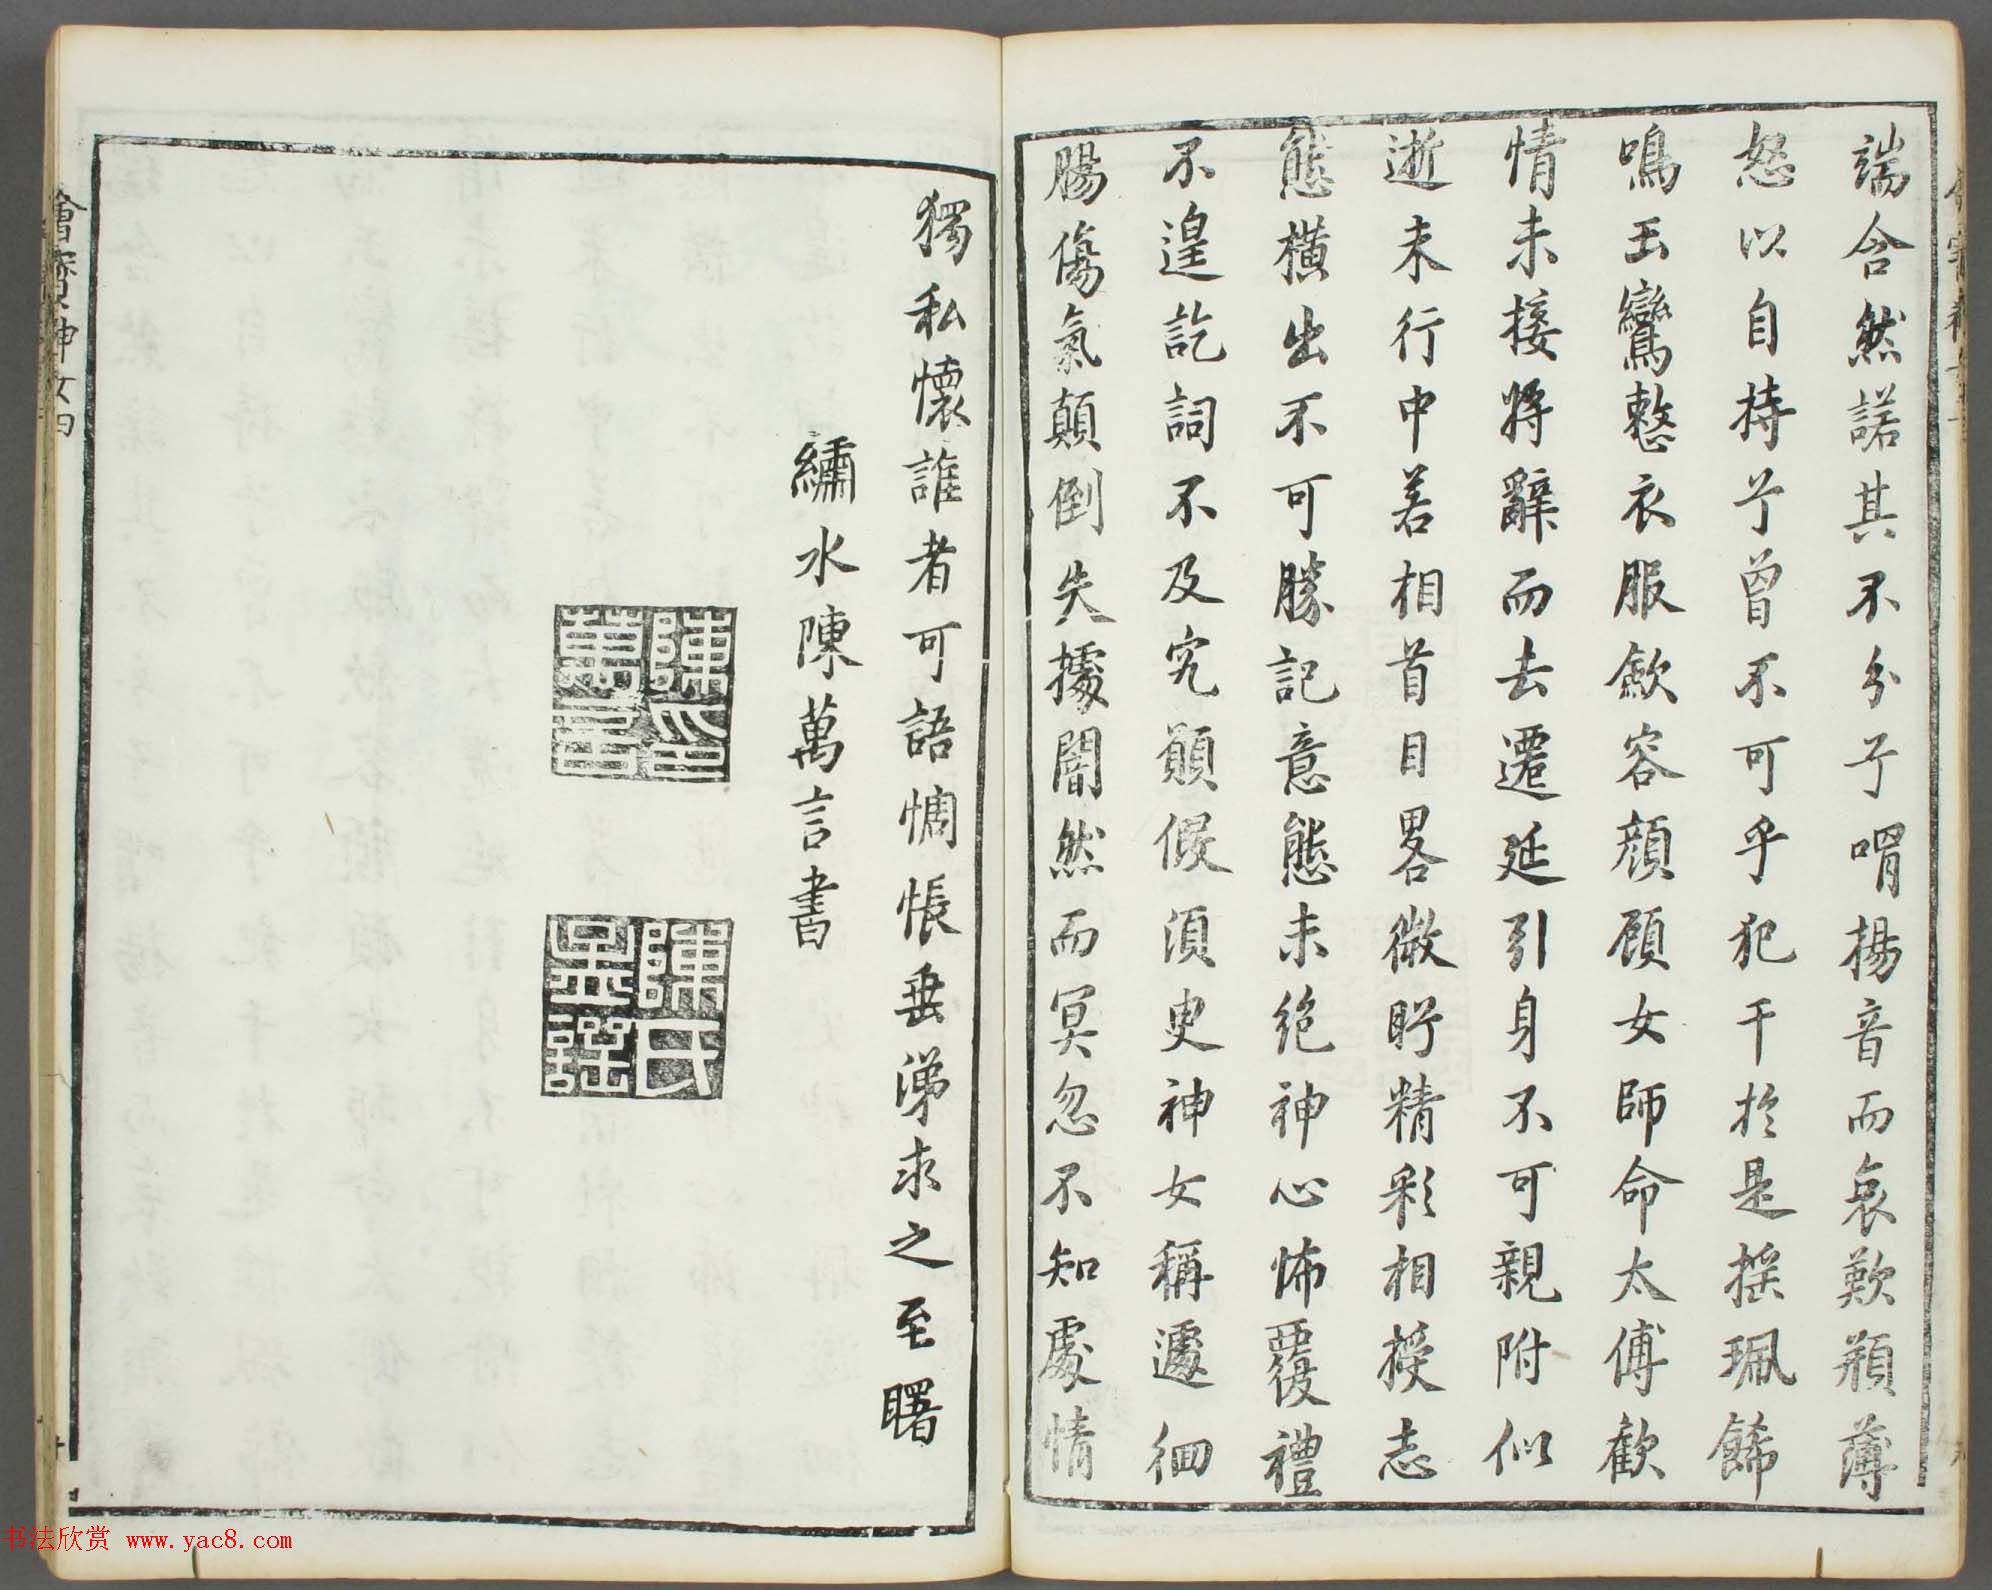 端含然諾其不分兮喟揚音而哀歎頩薄
怒以自持兮曾不可乎犯干於是揺珮餙
鳴玉鸞整衣服歛容顔顧女師命太傅歡
情未接將辭而去遷延引身不可親附似
逝未行中若相首目畧微盻精彩相授志
態橫出不可勝記意態未絶神心怖覆禮
不遑訖詞不及究願假須臾神女稱遽徊
腸傷氣顛倒失據闇然而冥忽不知處情
獨私懷誰者可語惆悵垂涕求之至曙
繡水陳萬言書
陳印萬言
陳氏
神女
书法欣赏 www.yac8.com